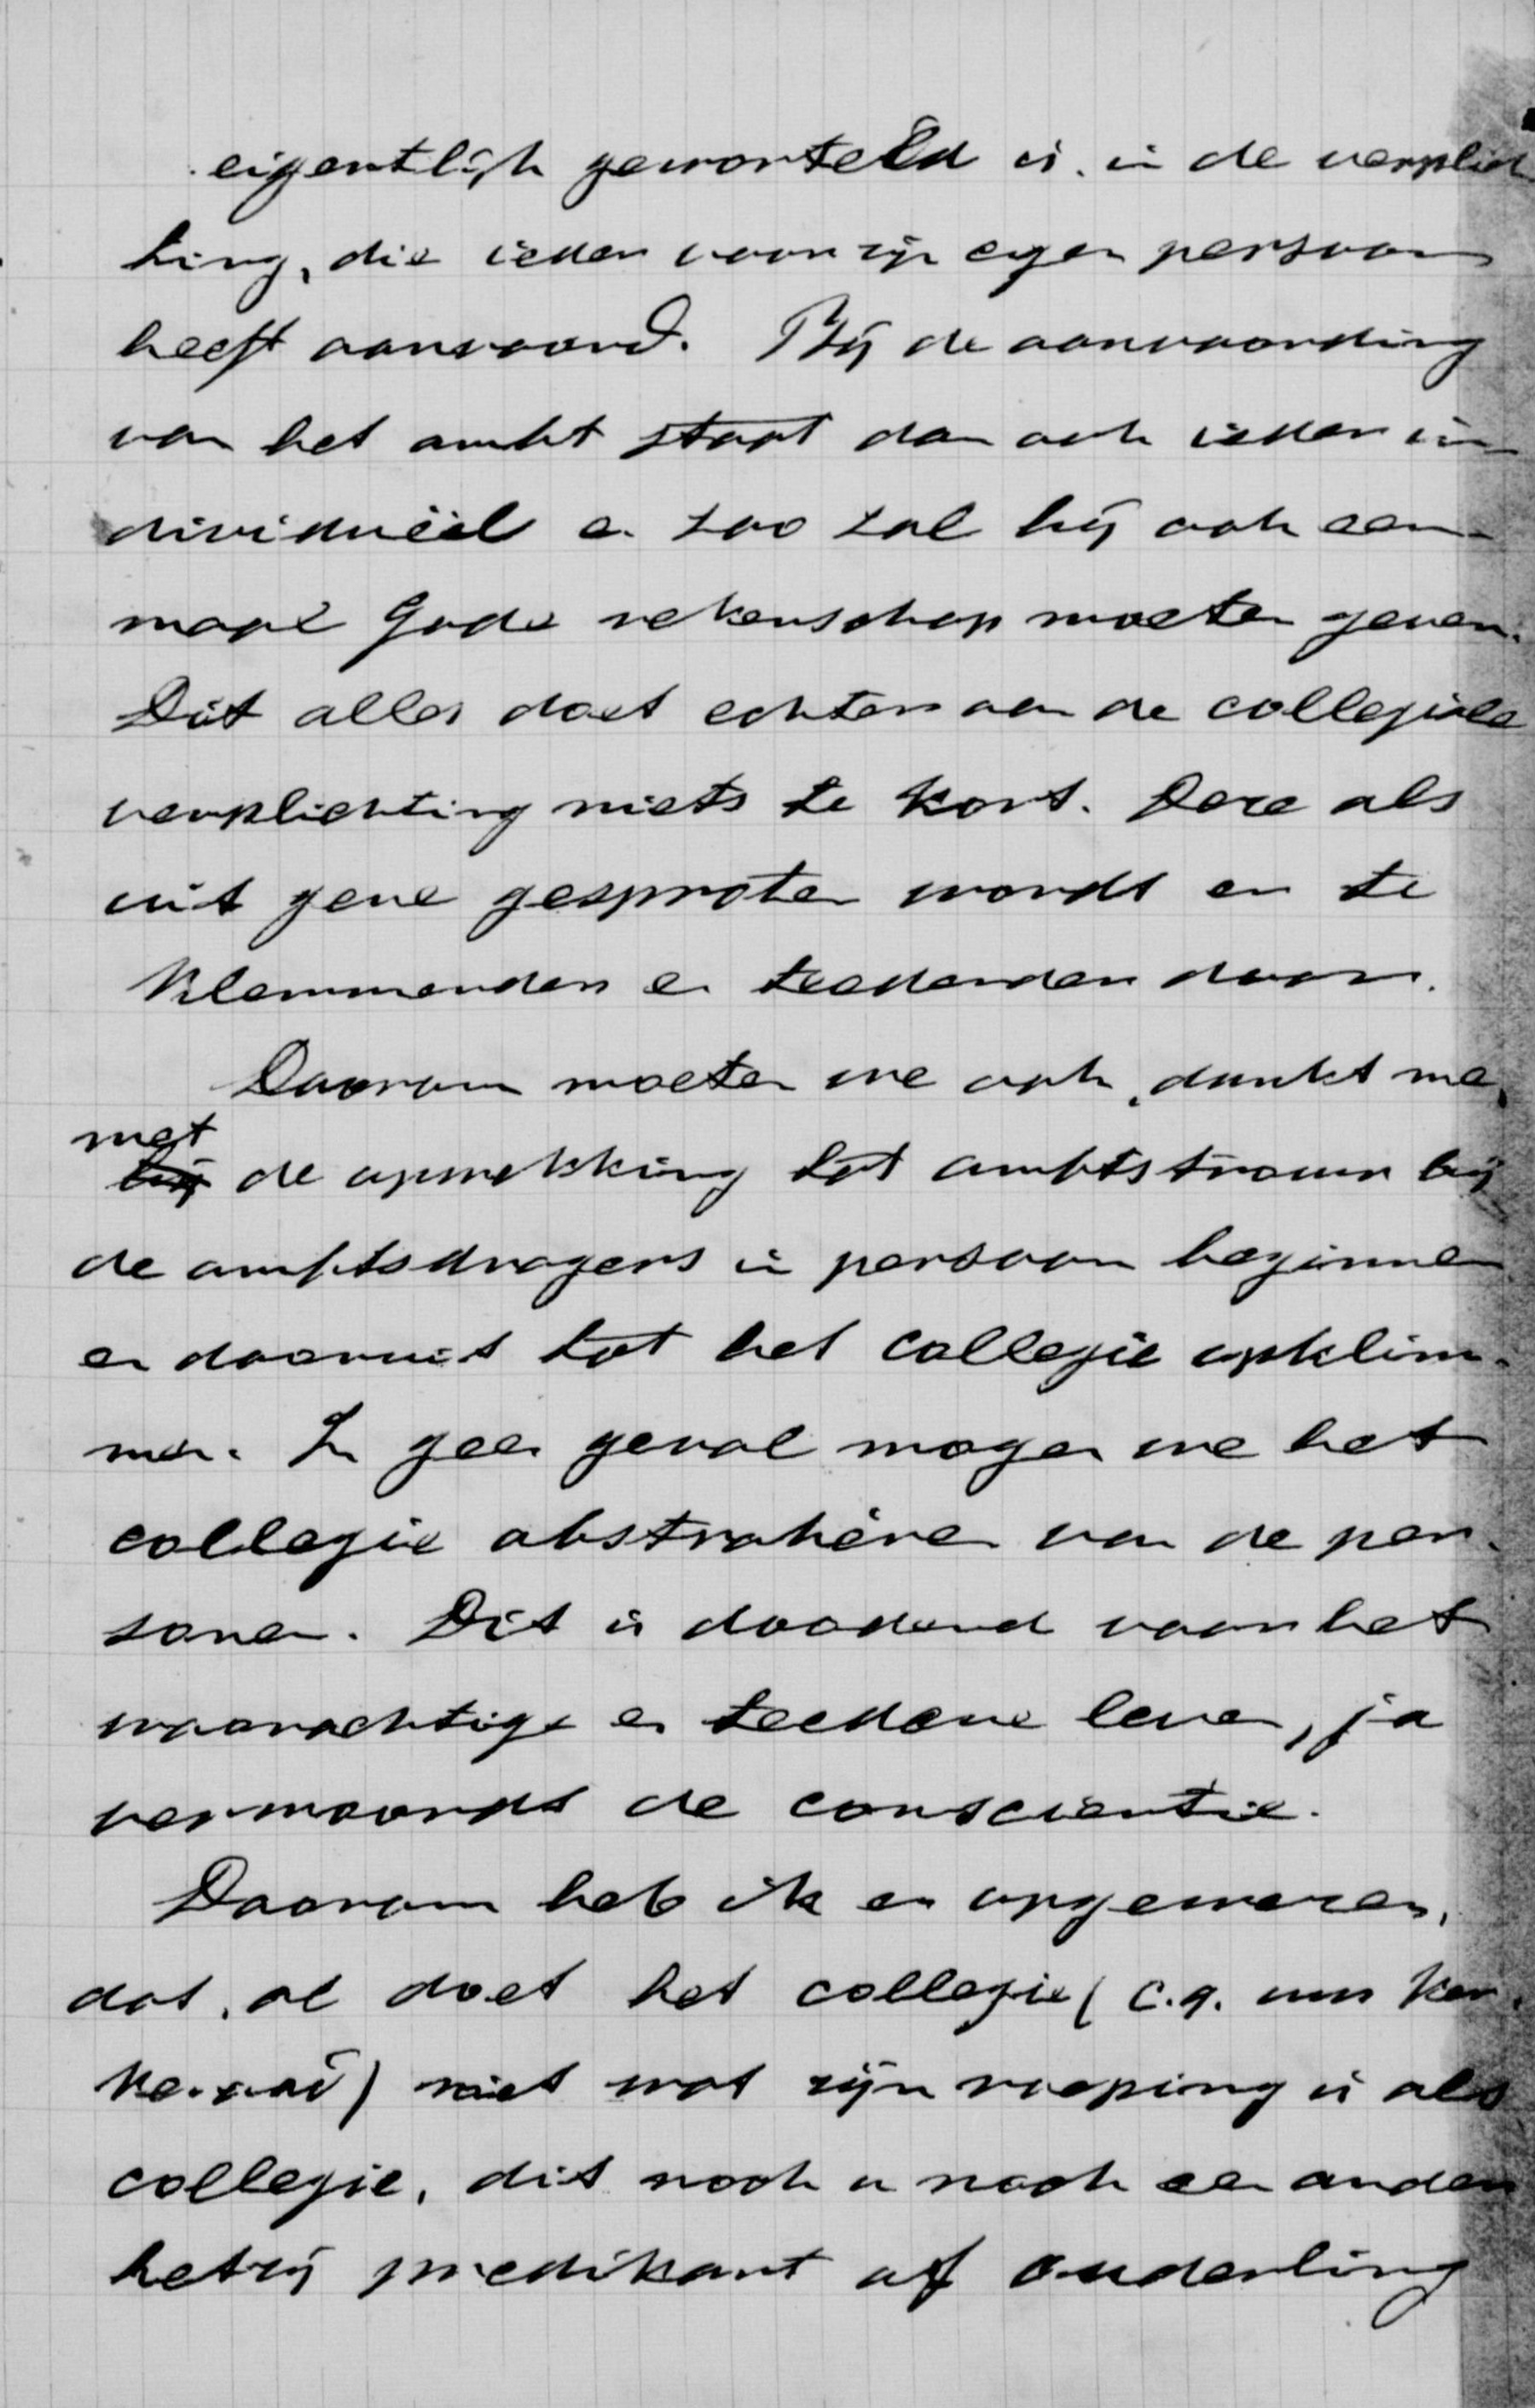 eigentlijk geworteld is in de verplich
ting, die ieder voor zijn eigen persoon
heeft aanvaard. Bij de aanvaarding
van het ambt staat dan ook ieder in-
dividuëel en zoo zal hij ook een-
maal Gode rekenschap moeten geven.
Dit alles doet echter aan de collegiale
verplichting niets te kort. Deze als
uit gene gesproten wordt er te
klemmender en teederder door.
Daarom moeten we ook, dunkt me,
met
bij de opwekking tot ambtstrouw bij
de ambtsdragers in persoon beginnen
en daaruit tot het collegie opklim-
men. In geen geval mogen we het
collegie abstrahéren van de per-
sonen. Dit is doodend voor het
waarachtige en teedere leven, ja
vermoordt de conscientie.
Daarom heb ik er op gewezen,
dat, al doet het collegie (c.q. uw ker-
keraad) niet wat zijn roeping is als
collegie, dit noch u noch een ander
hetzij predikant of ouderling